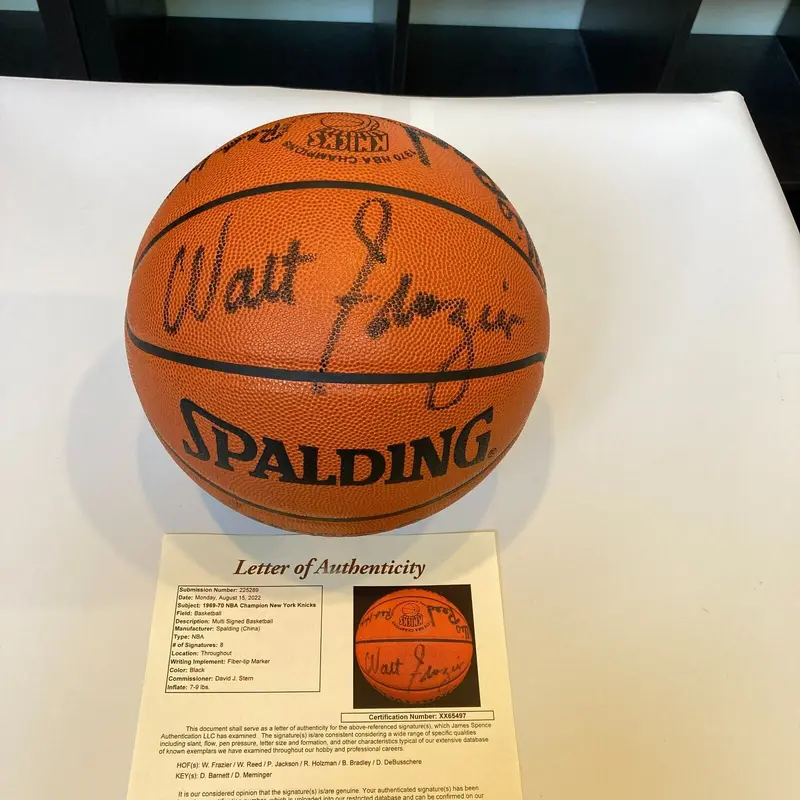 KNICKS
1970 NBA CHAMPIONS
Walt Frazier
SPALDING®
Letter of Authenticity
Submission Number: 225289
Date: Monday, August 15, 2022
Subject: 1969-70 NBA Champion New York Knicks
Field: Basketball
Description: Multi Signed Basketball
Manufacturer: Spalding (China)
Type: NBA
# of Signatures: 8
Location: Throughout
Writing Implement: Fiber-tip Marker
Color: Black
Commissioner: David J. Stern
Inflate: 7-9 lbs.
KNICKS
Walt Frazier
Certification Number: XX65497
This document shall serve as a letter of authenticity for the above-referenced signature(s), which James Spence
Authentication LLC has examined. The signature(s) is/are consistent considering a wide range of specific qualities
including slant, flow, pen pressure, letter size and formation, and other characteristics typical of our extensive database
of known exemplars we have examined throughout our hobby and professional careers.
HOF(s): W. Frazier / W. Reed / P. Jackson / R. Holzman / B. Bradley / D. DeBusschere
KEY(s): D. Barnett / D. Meminger
It is our considered opinion that the signature(s) is/are genuine. Your authenticated signature(s) has been
which is uploaded into our restricted database and can be confirmed on our